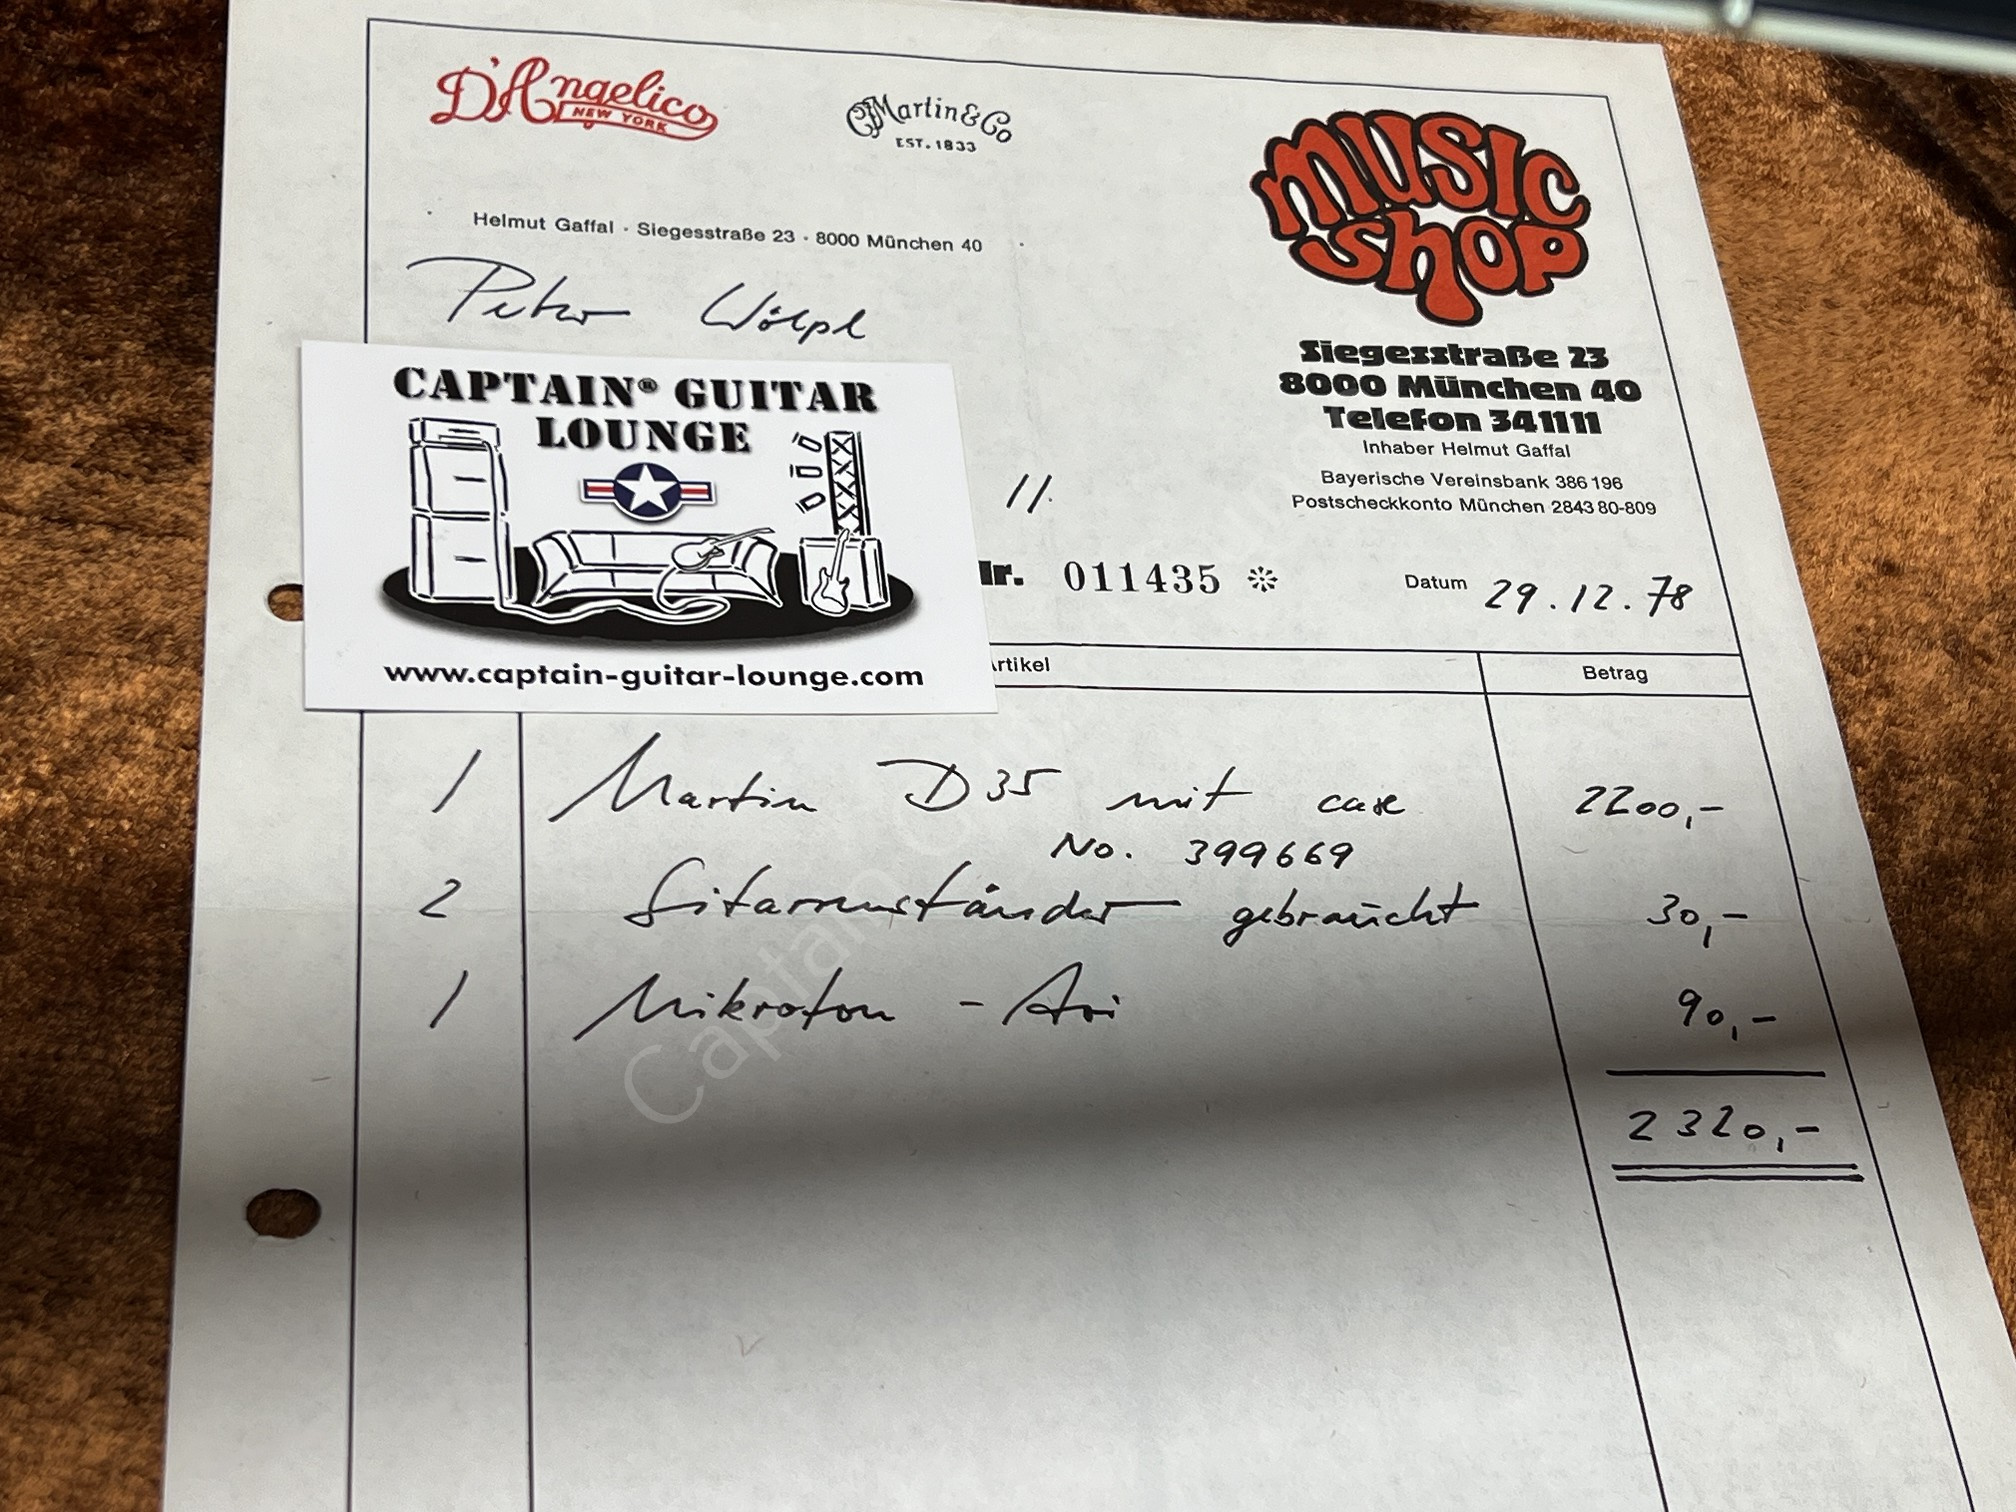 D'Angelico
NEW YORK
CF Martin & Co
EST. 1833
MUSIC
SHOP
Helmut Gaffal · Siegesstraße 23 · 8000 München 40
Peter Wölpl
Siegesstraße 23
8000 München 40
Telefon 341111
Inhaber Helmut Gaffal
Bayerische Vereinsbank 386 196
Postscheckkonto München 2843 80-809
CAPTAIN® GUITAR
LOUNGE
www.captain-guitar-lounge.com
11.
Nr. 011435 * Datum 29.12.78
Artikel Betrag
1 Martin D35 mit case 2200,-
No. 399669
2 Gitarrenständer gebraucht 30,-
1 Mikrofon - 90,-
2320,-
Captain